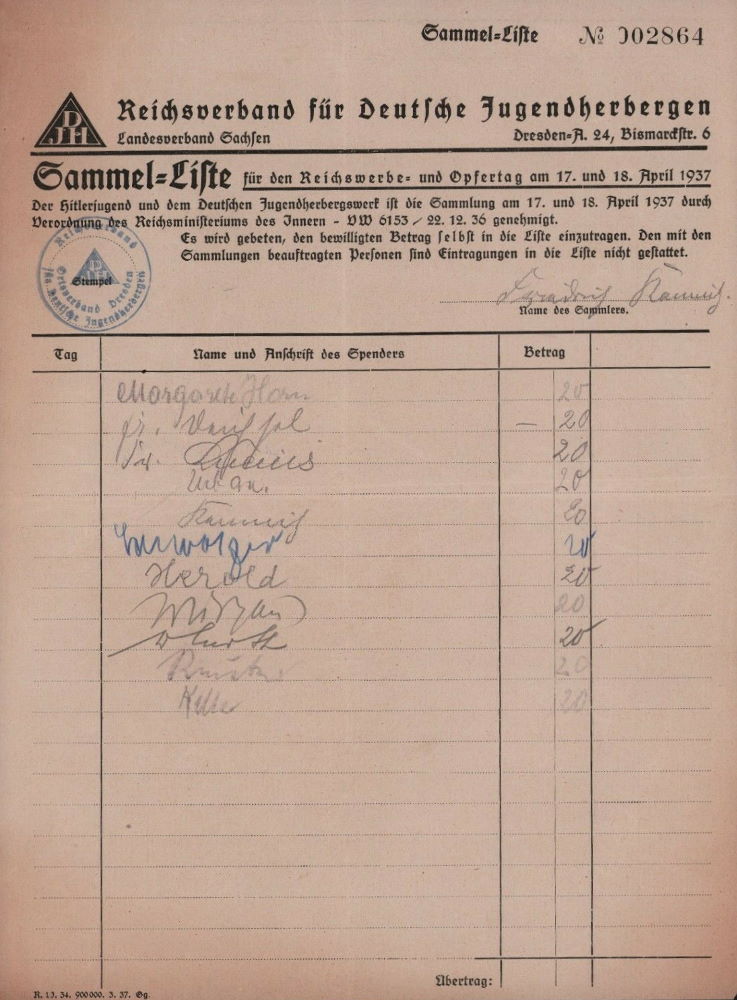 Sammel-Liste № 002864
DJH
Reichsverband für Deutsche Jugendherbergen
Landesverband Sachsen Dresden-A. 24, Bismarckstr. 6
Sammel-Liste für den Reichswerbe- und Opfertag am 17. und 18. April 1937
Der Hitlerjugend und dem Deutschen Jugendherbergswerk ist die Sammlung am 17. und 18. April 1937 durch
Verordnung des Reichsministeriums des Innern - VW 6153 / 22. 12. 36 genehmigt.
Es wird gebeten, den bewilligten Betrag selbst in die Liste einzutragen. Den mit den
Sammlungen beauftragten Personen sind Eintragungen in die Liste nicht gestattet.
Reichsverband
DJH
Stempel
Ortsverband Dresden
für Deutsche Jugendherbergen
Friedrich
Name des Sammlers.
Tag Name und Anschrift des Spenders Betrag
Margarete Horn 20
Fr. — 20
Fr. 20
20
20
20
Herold 20
20
20
20
20
Übertrag:
R. 13. 34. 900000. 3. 37. Gg.